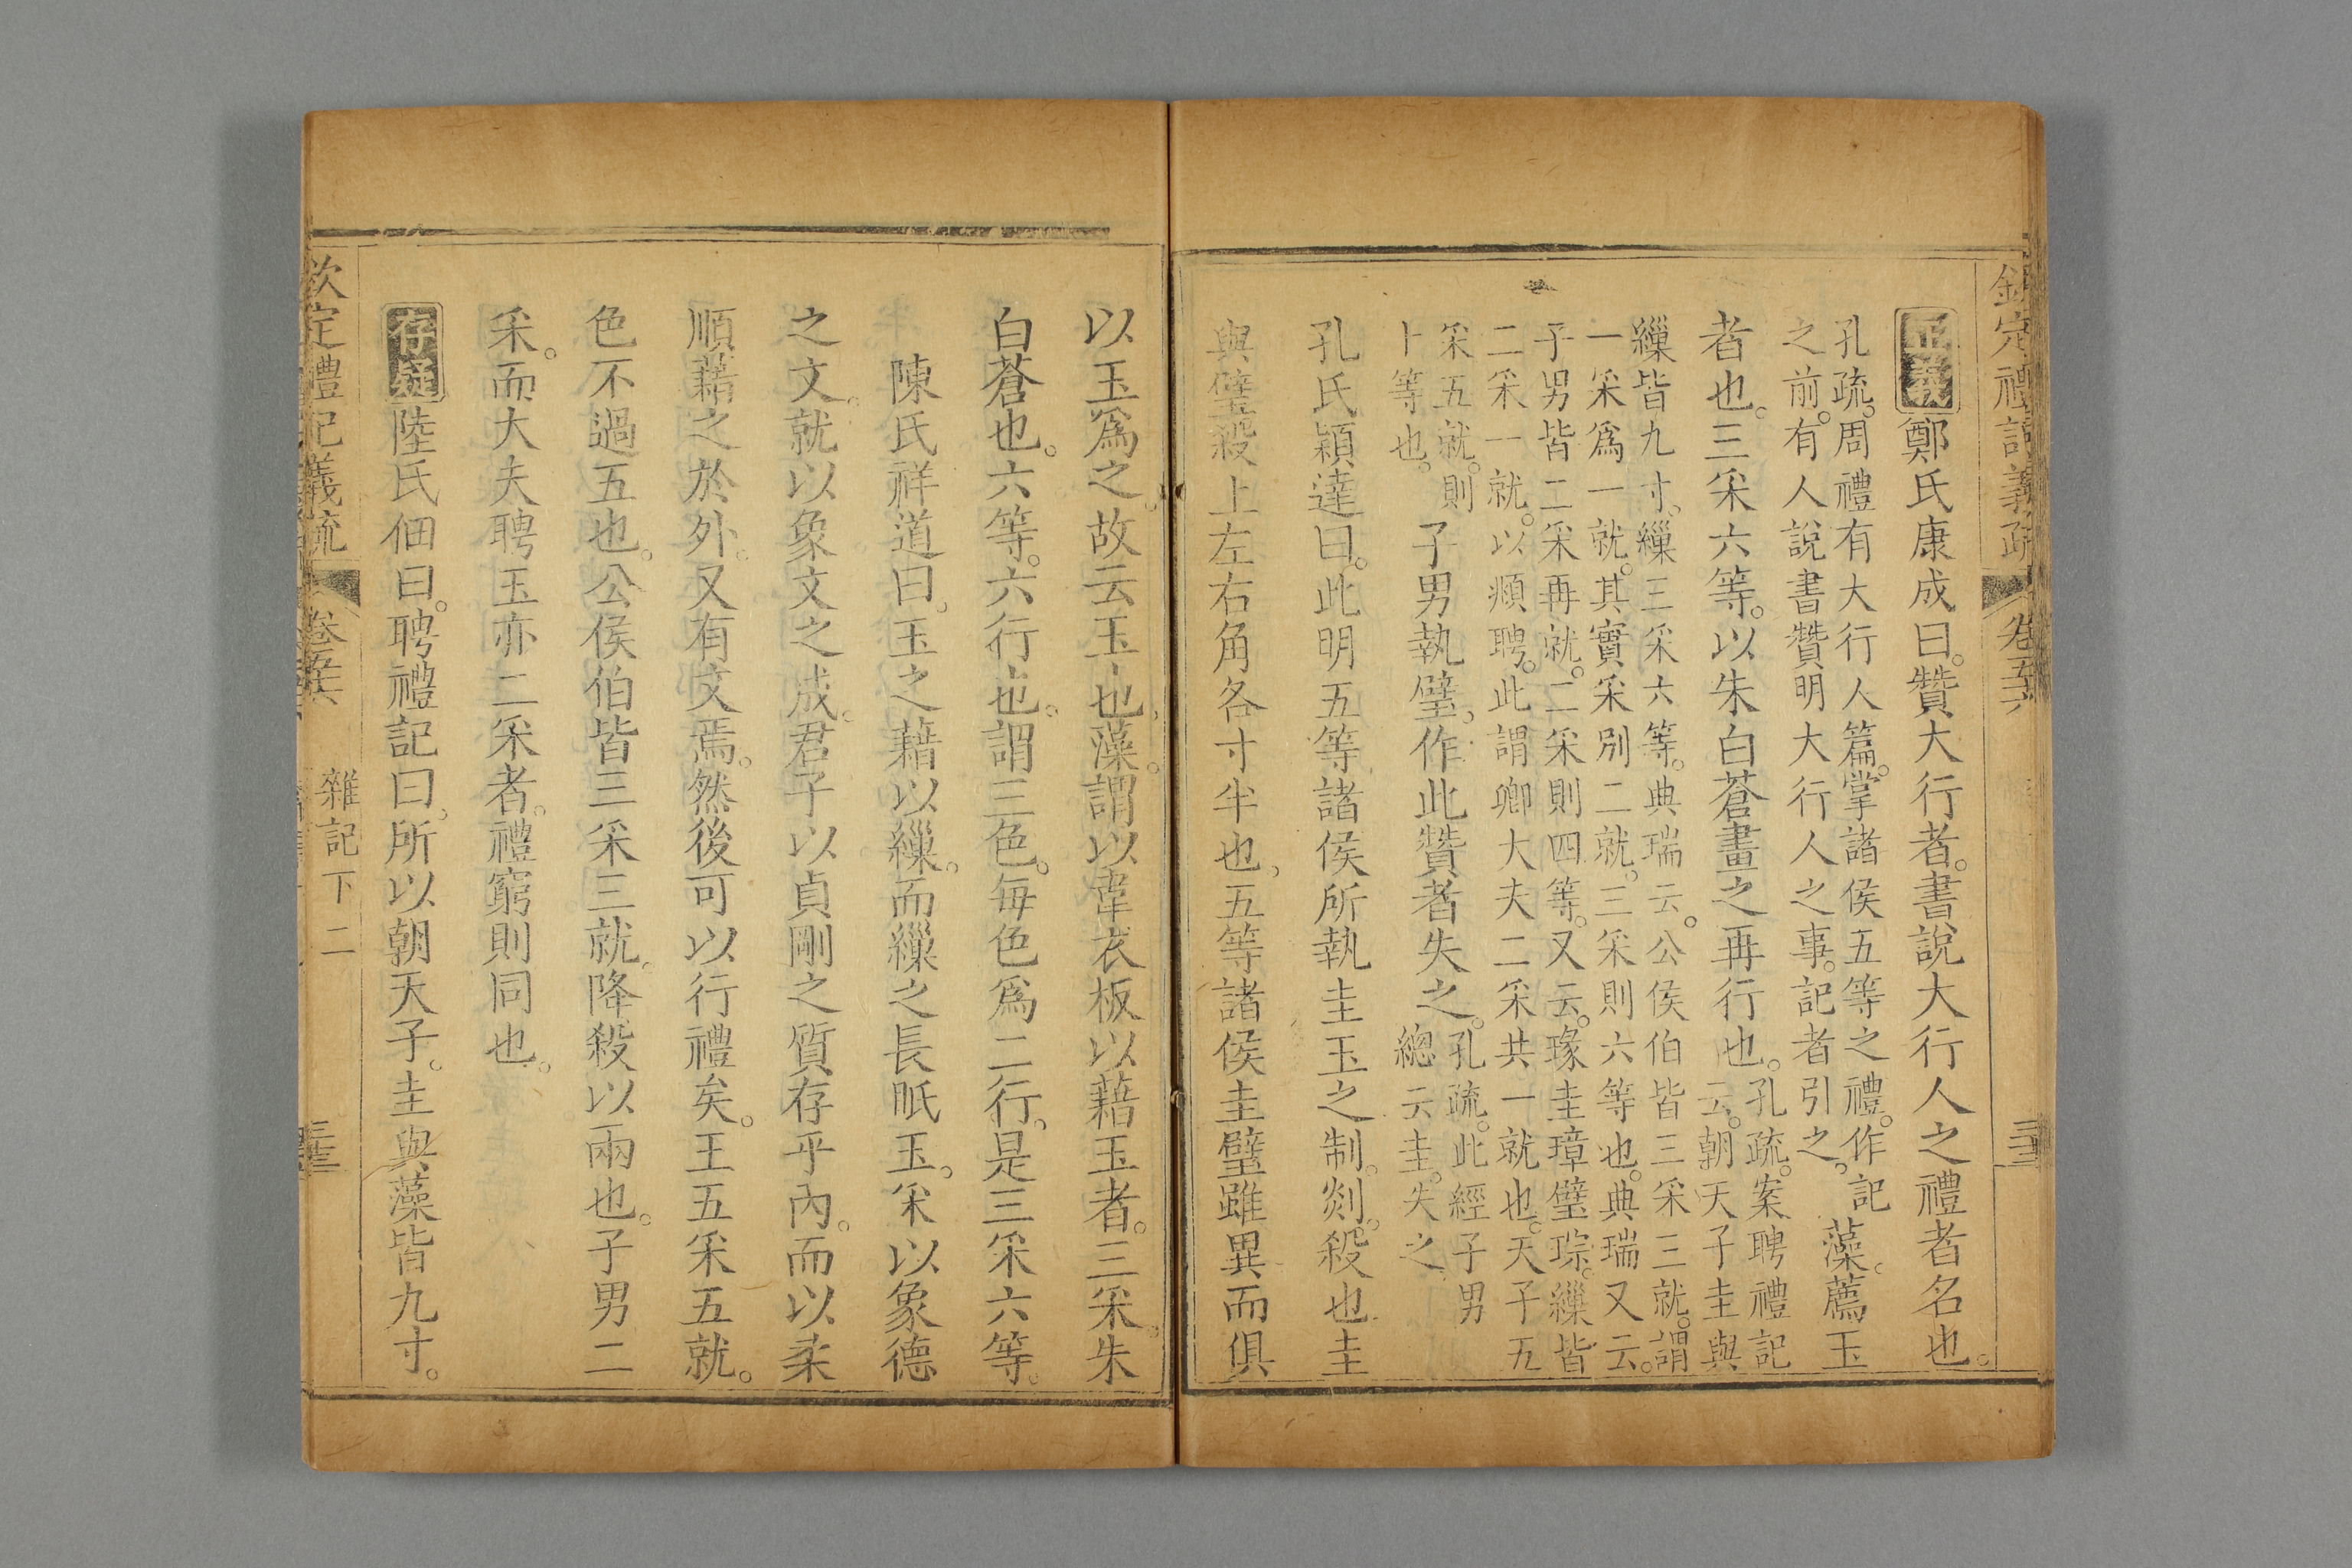 欽定禮記義疏 卷五十六
正義鄭氏康成曰。贊大行者。書說大行人之禮者名也。
孔疏。周禮有大行人篇。掌諸侯五等之禮。作記
之前。有人說書贊明大行人之事。記者引之。
藻。薦玉
者也。三采六等。以朱白蒼畫之再行也。
孔疏。案聘禮記
云。朝天子圭與
繅皆九寸。繅三采六等。典瑞云。公侯伯皆三采三就。謂
一采爲一就。其實采別二就。三采則六等也。典瑞又云。
子男皆二采再就。二采則四等。又云。瑑圭璋璧琮。繅皆
二采一就。以頫聘。此謂卿大夫二采共一就也。天子五
采五就。則
十等也。
子男執璧。作此贊者失之。
孔疏。此經子男
總云圭。失之。
孔氏穎達曰。此明五等諸侯所執圭玉之制。剡。殺也圭
與璧殺上左右角各寸半也。五等諸侯圭璧雖異而俱
以玉爲之。故云玉也。藻。謂以韋衣板以藉玉者。三采。朱
白蒼也。六等。六行也。謂三色。每色爲二行。是三采六等。
陳氏祥道曰。玉之藉以繅。而繅之長眂玉。采以象德
之文。就以象文之成。君子以貞剛之質存乎內。而以柔
順藉之於外。又有文焉。然後可以行禮矣。王五采五就。
色不過五也。公侯伯皆三采三就。降殺以兩也。子男二
采。而大夫聘玉亦二采者。禮窮則同也。
存疑陸氏佃曰。聘禮記曰。所以朝天子。圭與藻皆九寸。
欽定禮記義疏 卷五十六 雜記下二